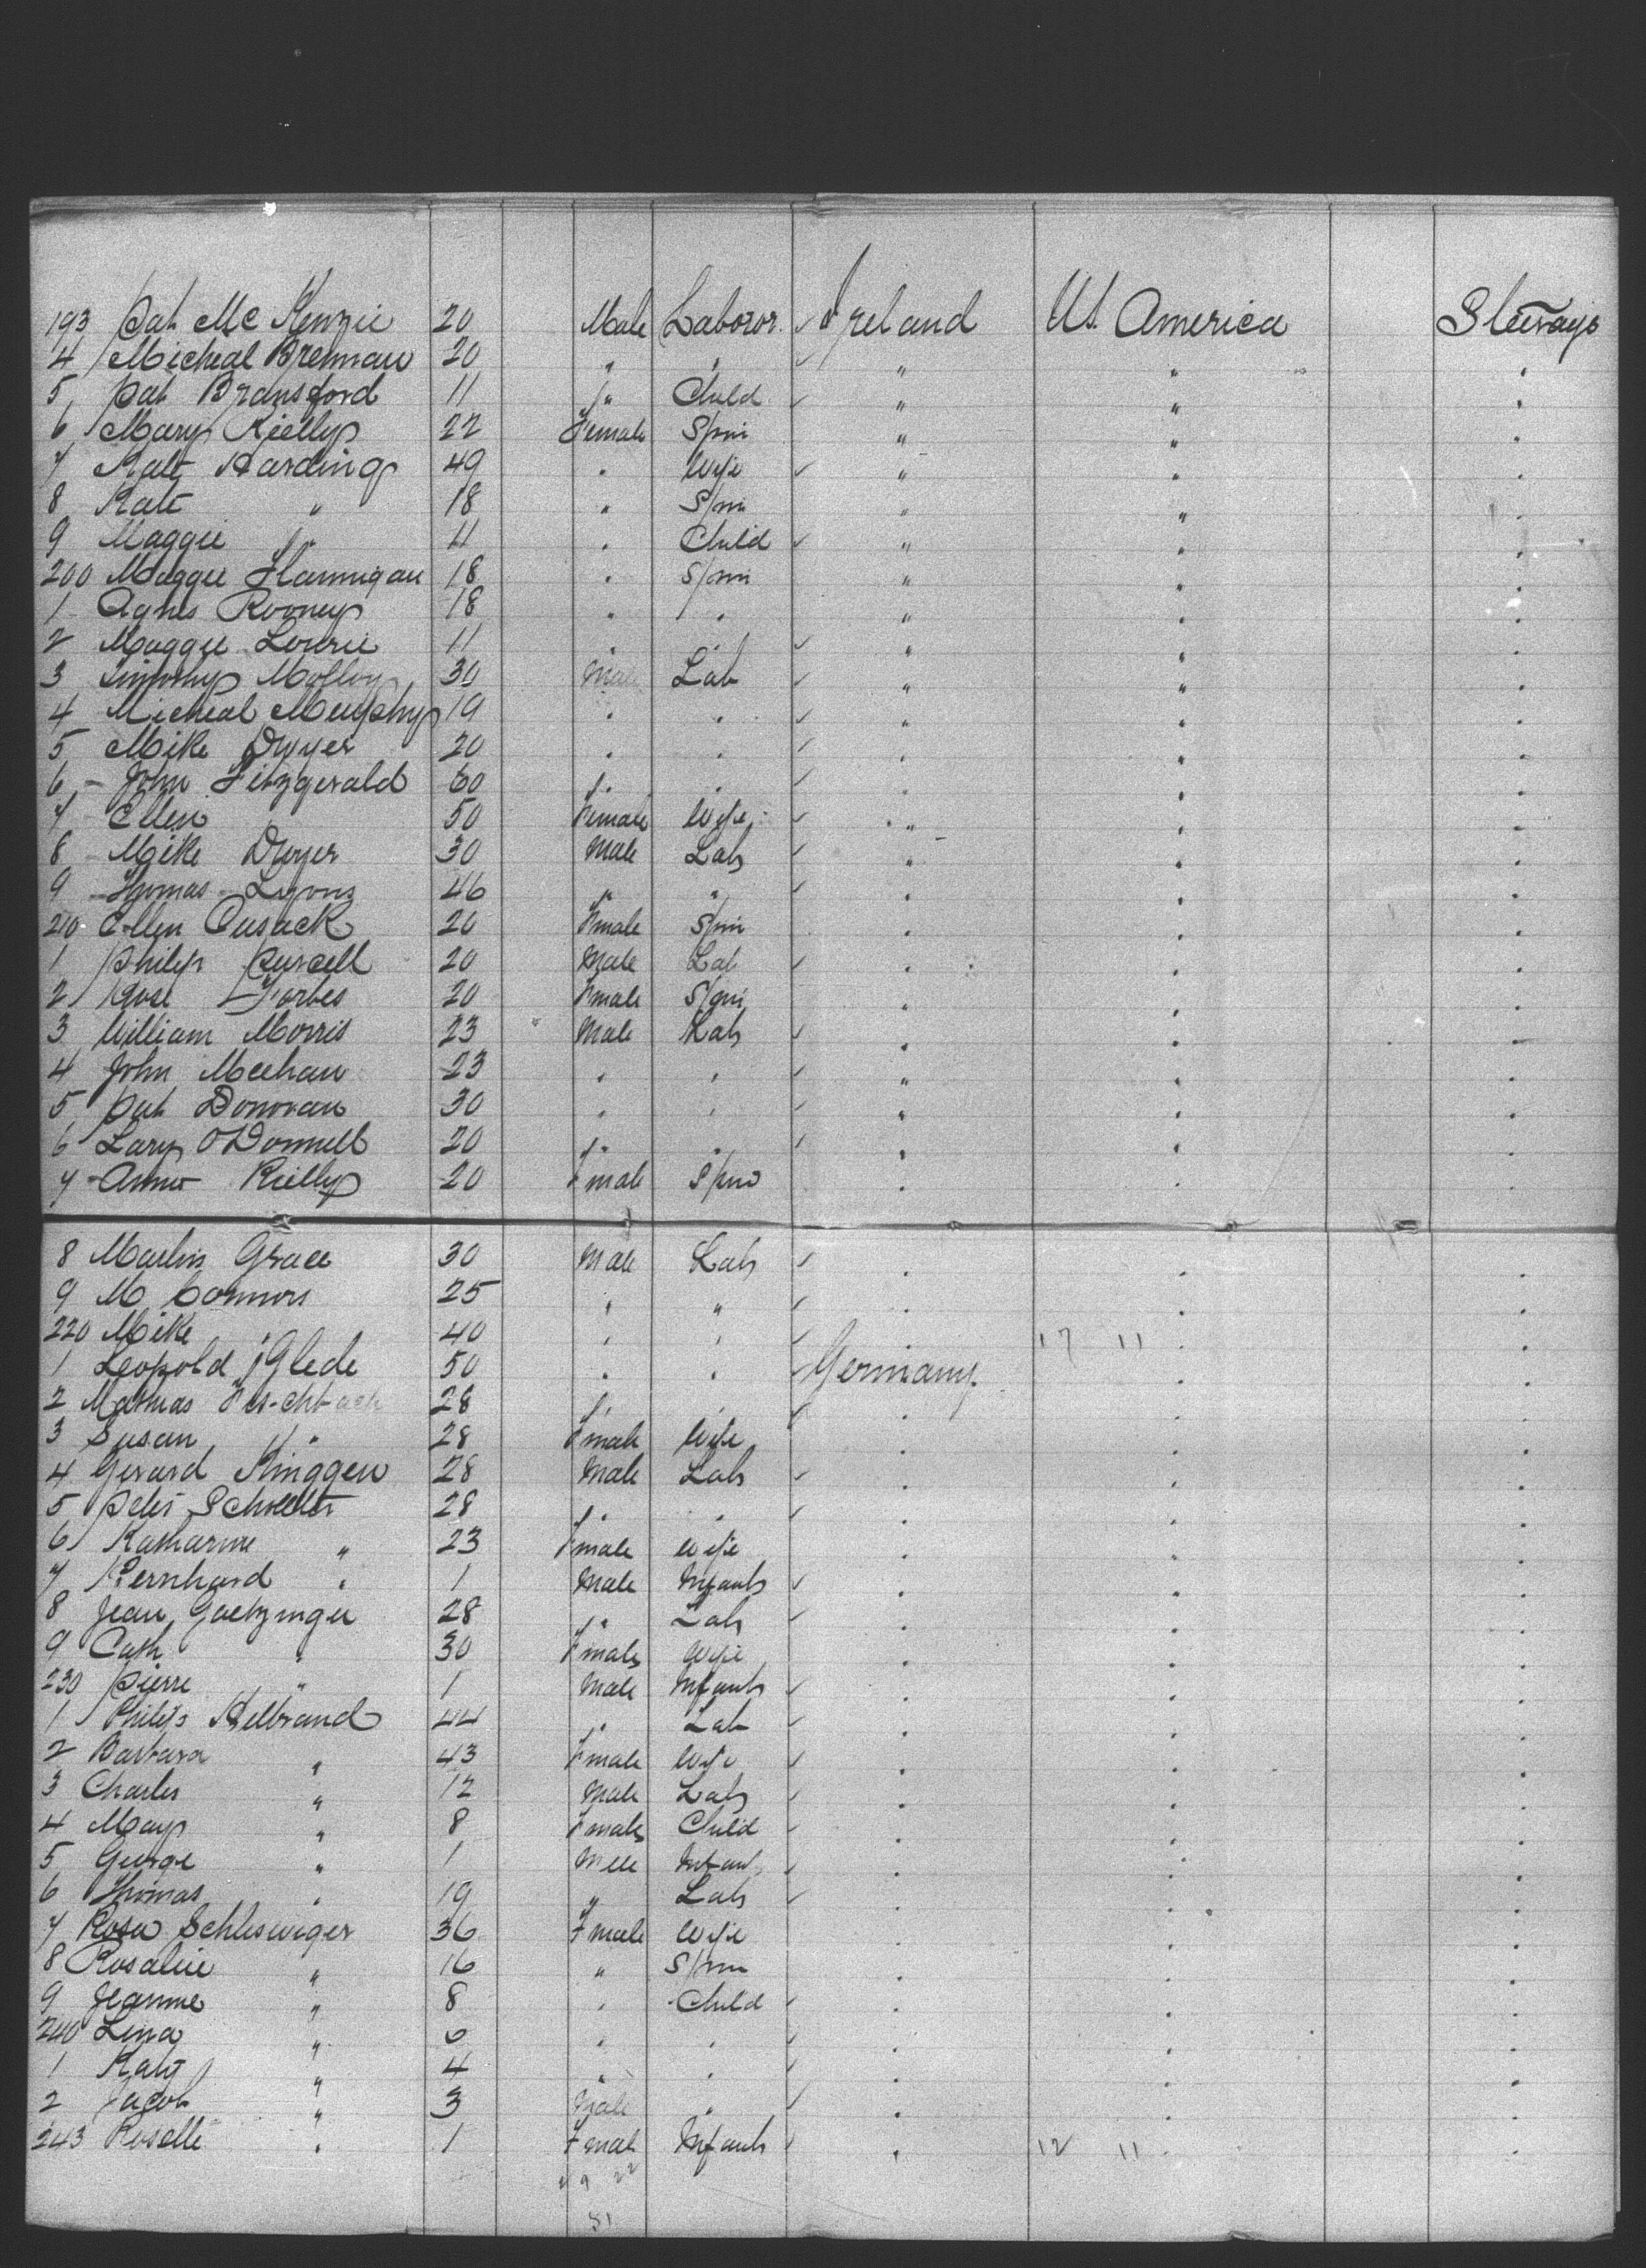 193 Pat Mc Kenzie 20 Male Laboror ✓ Ireland U.S. America Steerage
4 Micheal Brennan 20 " " ✓ " " "
5 Pat Bransford 11 " Child ✓ " " "
6 Mary Rielly 22 Female Spin " " "
7 Kate Harding 49 " Wife ✓ " " "
8 Kate " 18 " Spin " " "
9 Maggie " 11 " Child ✓ " " "
200 Maggie Flannigan 18 " Spin " " "
1 Agnes Rooney 18 " " " " "
2 Maggie Lowrie 11 " " ✓ " " "
3 Timothy Molloy 30 Male Lab ✓ " " "
4 Micheal Murphy 19 " " ✓ " " "
5 Mike Dwyer 20 " " ✓ " " "
6 - John Fitzgerald 60 " " ✓ " " "
7 Ellen 50 Female Wife ✓ " " "
8 - Mike Dwyer 30 Male Lab ✓ " " "
9 - Thomas Lyons 46 " " ✓ " " "
210 Ellen Cusack 20 Fmale Spin " " "
1 Philip Purcell 20 Male Lab ✓ " " "
2 Rose Forbes 20 Fmale Spin " " "
3 William Morris 23 Male Lab ✓ " " "
4 John Meehan 23 " " ✓ " " "
5 Pat Donovan 30 " " ✓ " " "
6 Lary O'Donnell 20 " " ✓ " " "
7 - Annie Rielly 20 Fmale Spin " " "
8 Martin Grace 30 Male Lab ✓ " " "
9 M Connors 25 " " ✓ " " "
220 Mike " 40 " " ✓ 17 11 " "
1 Leopold Glede 50 " " ✓ Germany " "
2 Mathias 28 " " ✓ " " "
3 Susan " 28 Fmale Wife " " "
4 Gerard Ringgen 28 Male Lab ✓ " " "
5 Peter 28 " " ✓ " " "
6 Katharine " 23 Fmale Wife " " "
7 Bernhard " 1 Male Infant ✓ " " "
8 Jean Goetzinger 28 " Lab ✓ " " "
9 Cath " 30 Fmale Wife " " "
230 Pierre " 1 Male Infant ✓ " " "
1 Philip Helbrand 44 " Lab ✓ " " "
2 Barbara " 43 Fmale Wife ✓ " " "
3 Charles " 12 Male Lab ✓ " " "
4 Mary " 8 Fmale Child ✓ " " "
5 George " 1 Male Infant ✓ " " "
6 Thomas " 19 " Lab ✓ " " "
7 Rosa Schleswiger 36 Fmale Wife " " "
8 Rosalie " 16 " Spin " " "
9 Jeanne " 8 " Child ✓ " " "
240 Lina " 6 " " ✓ " " "
1 Katy " 4 " " ✓ " " "
2 Jacob " 3 Male " ✓ " " "
243 Roselle " 1 Fmale Infant ✓ " 12 11 " "
29 22
51